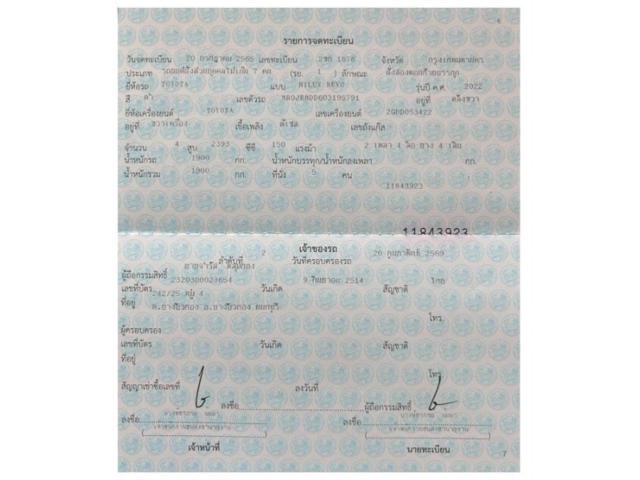 6
รายการจดทะเบียน
วันจดทะเบียน 20 กรกฎาคม 2565 เลขทะเบียน 2ขก 1876 จังหวัด กรุงเทพมหานคร
ประเภท รถยนต์นั่งส่วนบุคคลไม่เกิน 7 คน (รย. 1 ) ลักษณะ นั่งสองตอนท้ายบรรทุก
ยี่ห้อรถ TOYOTA แบบ HILUX REVO รุ่นปี ค.ศ. 2022
สี ดำ เลขตัวรถ อยู่ที่ คลังขวา
ยี่ห้อเครื่องยนต์ TOYOTA เลขเครื่องยนต์
อยู่ที่ ขวาเครื่อง เชื้อเพลิง ดีเซล เลขถังแก๊ส
จำนวน 4 สูบ 2393 ซีซี 150 แรงม้า 2 เพลา 4 ล้อ ยาง 4 เส้น
น้ำหนักรถ 1900 กก. น้ำหนักบรรทุก/น้ำหนักลงเพลา กก.
น้ำหนักรวม 1900 กก. ที่นั่ง 5 คน
11843923
11843923
เจ้าของรถ
ลำดับที่ 2 วันที่ครอบครองรถ 20 กุมภาพันธ์ 2569
ผู้ถือกรรมสิทธิ์
เลขที่บัตร วันเกิด 2514 สัญชาติ ไทย
ที่อยู่ 242/25 หมู่ 4
โทร.
ผู้ครอบครอง
เลขที่บัตร วันเกิด สัญชาติ
ที่อยู่
โทร.
สัญญาเช่าซื้อเลขที่ ลงวันที่
ลงชื่อ ผู้ถือกรรมสิทธิ์
ลงชื่อ ลงชื่อ
เจ้าหน้าที่ นายทะเบียน
7